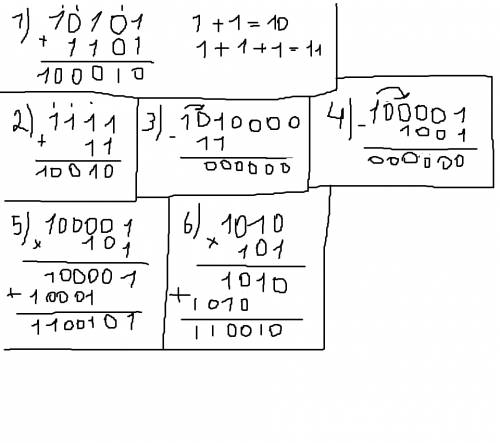 1) 10101
+ 1101
100010
1 + 1 = 10
1 + 1 + 1 = 11
2) 1111
+ 11
10010
3) - 1010000
11
000000
4) - 100001
1001
000000
5) 100001
× 101
100001
+ 10001
1100101
6) 1010
× 101
1010
+ 1010
110010